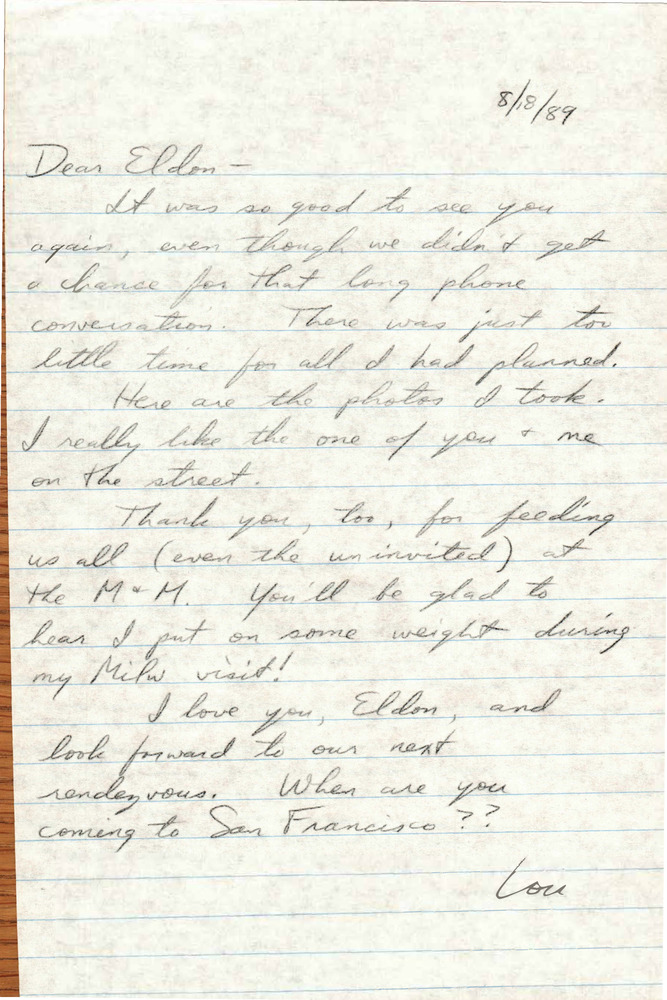 8/18/89
Dear Eldon —
It was so good to see you
again, even though we didn't get
a chance for that long phone
conversation. There was just too
little time for all I had planned.
Here are the photos I took.
I really like the one of you + me
on the street.
Thank you, too, for feeding
us all (even the uninvited) at
the M & M. You'll be glad to
hear I put on some weight during
my Milw visit!
I love you, Eldon, and
look forward to our next
rendezvous. When are you
coming to San Francisco??
Lou